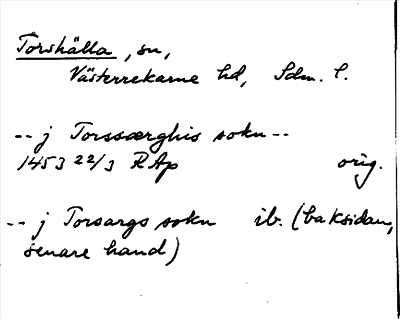 Torshälla, sn,
Västerrekarne hd, Sdm. l.
-- j Torssærghis sokn --
1453 22/3 RAp orig.
-- j Torsargs sokn ib. (baksidan,
senare hand)